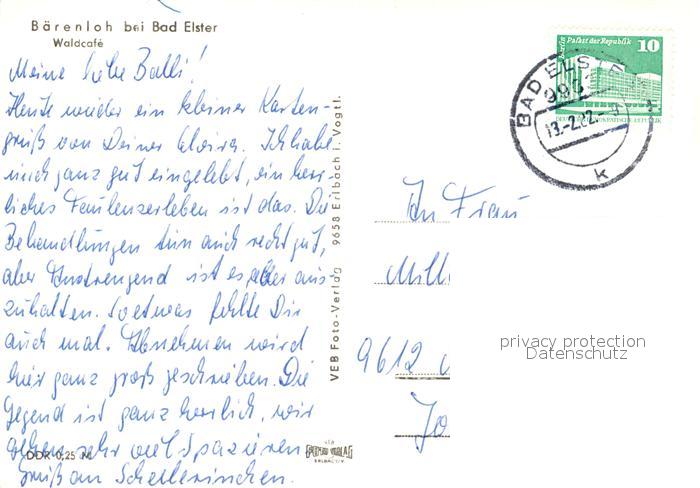 Bärenloh bei Bad Elster
Waldcafé
Meine liebe Balli!
Heute wieder ein kleiner Karten-
gruß von Deiner Elvira. Ich habe
mich ganz gut eingelebt, ein herr-
liches Faulenzerleben ist das. Die
Behandlungen tun auch recht gut,
aber Anstrengend ist es, aber aus-
zuhalten. So etwas fehlte Dir
auch mal. Abnehmen wird
hier ganz groß geschrieben. Die
Gegend ist ganz herrlich, wir
gehen sehr viel Spazieren
Gruß an
DDR 0,25 M
VEB Foto-Verlag 9658 Erlbach i. Vogtl.
VEB
FOTO-VERLAG
ERLBACH/V.
Berlin Palast der Republik 10
BAD ELSTER
993
13.-2.82.-
k
An Frau
Mill
9612
Jo
privacy protection
Datenschutz